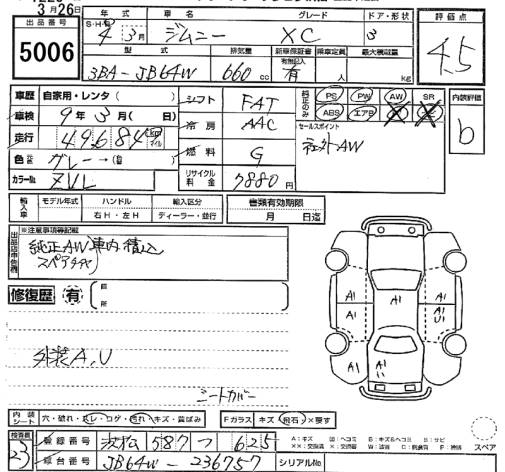 3月26日
出品番号 年式 車名 グレード ドア・形状 評価点
5006 S・H・R 4年3月 ジムニー XC 3 4.5
型式 排気量 新車保証書 乗車定員 最大積載量
3BA-JB64W 660cc 有無記入 有 人 kg
車歴 自家用・レンタ( ) シフト FAT 純正のみ PS PW AW SR 内装評価
車検 9年3月( 日) 冷房 AAC ABS エアB b
走行 49,684 セールスポイント
色 グレー→( ) 燃料 G 社外AW
カラーNo. ZVL リサイクル料金 7880円
輸入車 モデル年式 ハンドル 輸入区分 書類有効期限
右H・左H ディーラー・並行 月 日迄
出品店申告欄 ※注意事項等記載
純正AW車内積込
スペアタイヤ
修復歴 有 箇所
A1 A1 A1
A1 A1 U1
A1
外装A,U
シートカバー
内装シート 穴・破れ・ヨレ・コゲ・汚れ・キズ・凹み Fガラス キズ 飛石 ×要す
検査員 登録番号 浜松 587 つ 625 A:キズ U:ヘコミ B:キズ&ヘコミ S:サビ スペア
23 車台番号 JB64W-236757 シリアルNo.